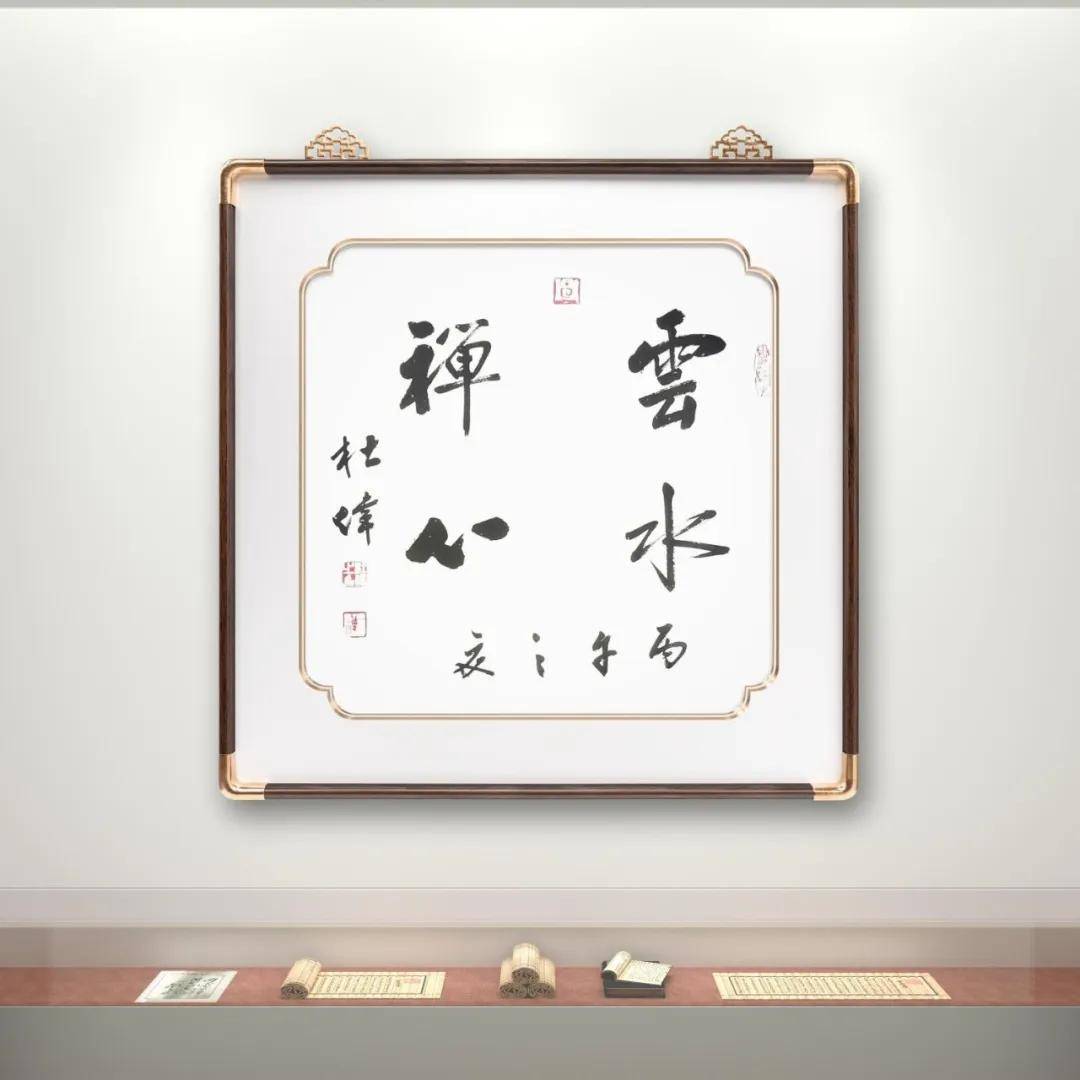 雲水
禪心
丙午之夏
杜煒